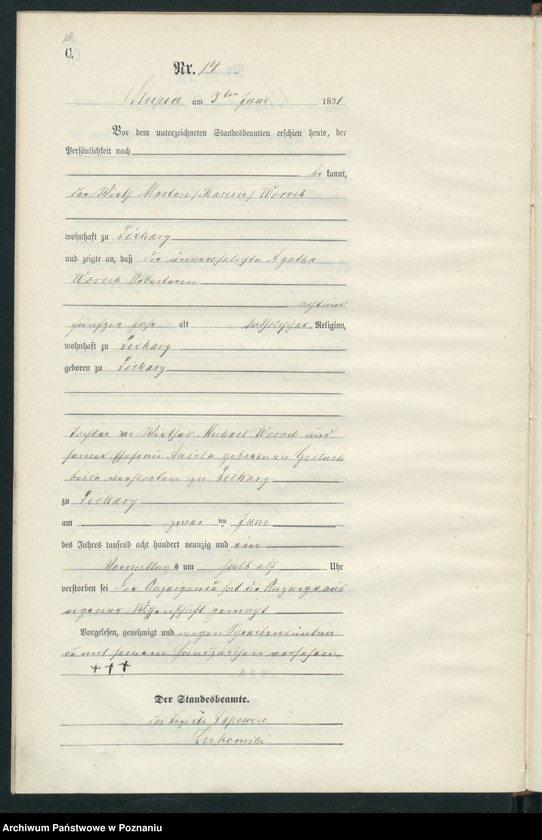 14.
C.
Nr. 14
am 3ten Juni 1891
Vor dem unterzeichneten Standesbeamten erschien heute, der
Persönlichkeit nach
be kannt,
der Wirth Martin /Marcin/ Woroch
wohnhaft zu Piekary
und zeigte an, daß die unverehelichte Agatha
Woroch
achtund
fünfzig Jahr alt katholischer Religion,
wohnhaft zu Piekary
geboren zu Piekary
Tochter der Wirthes Michael Woroch und
seiner Ehefrau Aniela geborenen
verstorben zu Piekary
zu Piekary
am zwei ten Juni
des Jahres tausend acht hundert neunzig und ein
Vormittag s um halb elf Uhr
verstorben sei der Anzeigende hat die Anzeige aus
eigener Wissenschaft gemacht
Vorgelesen, genehmigt und wegen Schreibensunkun
de mit seinem Handzeichen versehen
+++
Der Standesbeamte.
Archiwum Państwowe w Poznaniu